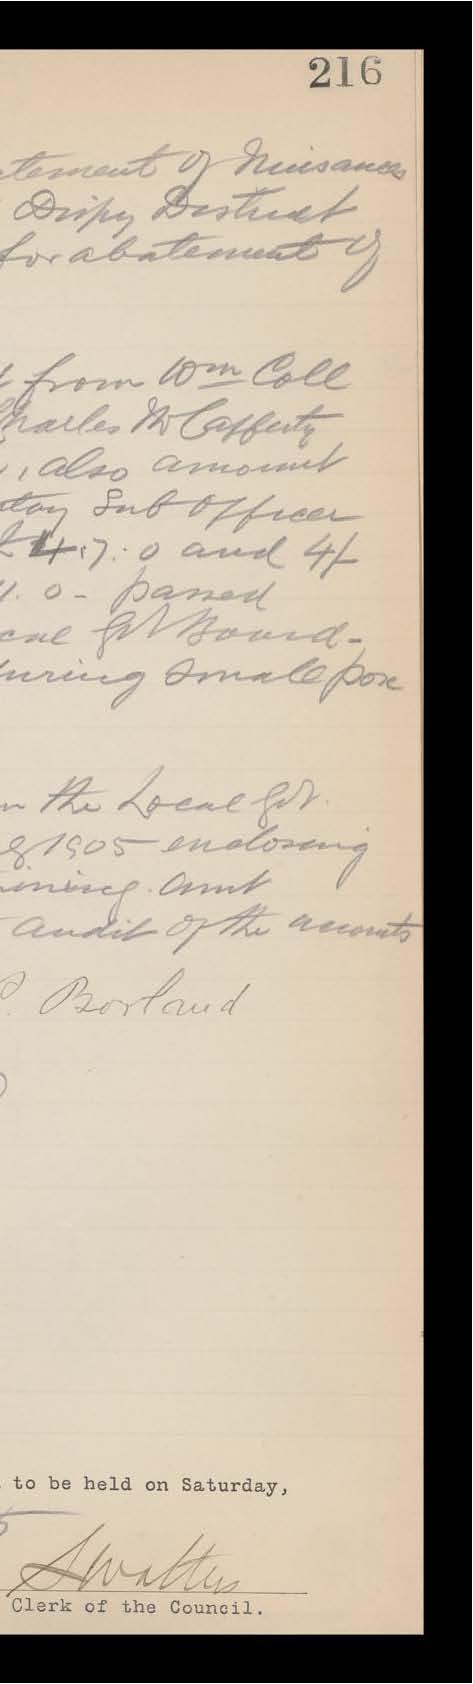 216
tement of Nuisances
District
for abatement of
from Wm Coll
Charles McCafferty
, also amount
Sub Officer
4.7.0 and 4/-
0 - passed
Govt Board -
during Small pox
the Local Govt
1905 enclosing
amt
audit of the accounts
Borland
to be held on Saturday,
Clerk of the Council.